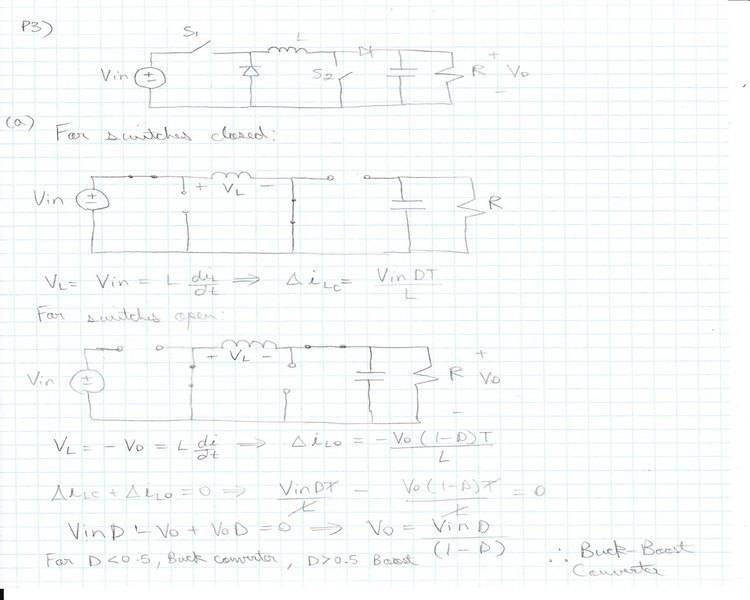 P3)
S1
L
Vin
S2
R
+
Vo
-
(a) For switches closed:
Vin
+ VL -
R
VL = Vin = L diL/dt ⇒ Δ iLC = Vin DT / L
For switches open:
Vin
+ VL -
R
+
Vo
-
VL = - Vo = L di/dt ⇒ Δ iLO = - Vo (1-D) T / L
Δ iLC + Δ iLO = 0 ⇒ Vin DT / L - Vo (1-D) T / L = 0
Vin D - Vo + Vo D = 0 ⇒ Vo = Vin D / (1 - D)
For D < 0.5, Buck converter, D > 0.5 Boost
∴ Buck-Boost
Converter